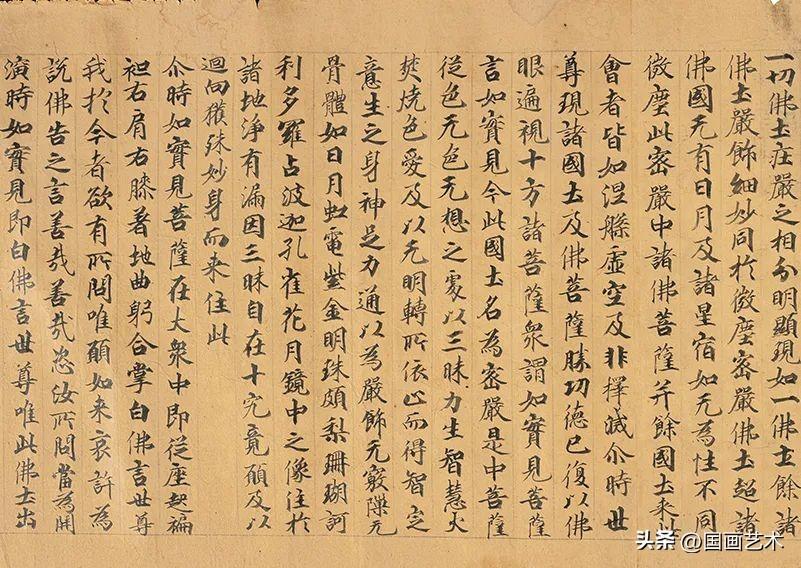 一切佛土莊嚴之相分明顯現如一佛土餘諸
佛土嚴飾細妙同於微塵密嚴佛土超諸
佛國无有日月及諸星宿如无為性不同
微塵此密嚴中諸佛菩薩并餘國土來此
會者皆如涅槃虛空及非擇滅尒時世
尊現諸國土及佛菩薩勝功德已復以佛
眼遍視十方諸菩薩眾謂如實見菩薩
言如實見今此國土名為密嚴是中菩薩
從色无色无想之處以三昧力生智慧火
焚燒色愛及以无明轉所依止而得智定
意生之身神足力通以為嚴飾无竅隙无
骨體如日月虹電紫金明珠頗梨珊瑚訶
利多羅占波迦孔雀花月鏡中之像住於
諸地淨有漏因三昧自在十究竟願及以
迴向獲殊妙身而來住此
尒時如實見菩薩在大眾中即從座起褊
袒右肩右膝著地曲躬合掌白佛言世尊
我於今者欲有所問唯願如來哀許為
說佛告之言善哉善哉恣汝所問當為開
演時如實見即白佛言世尊唯此佛土出
头条 @国画艺术